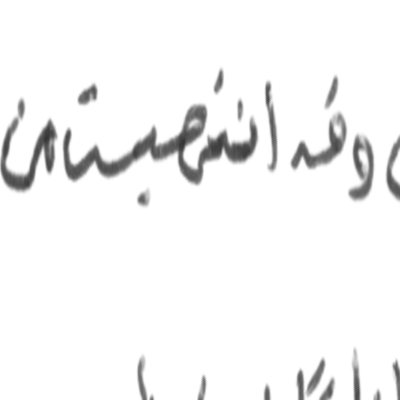 وقد انتهيت من